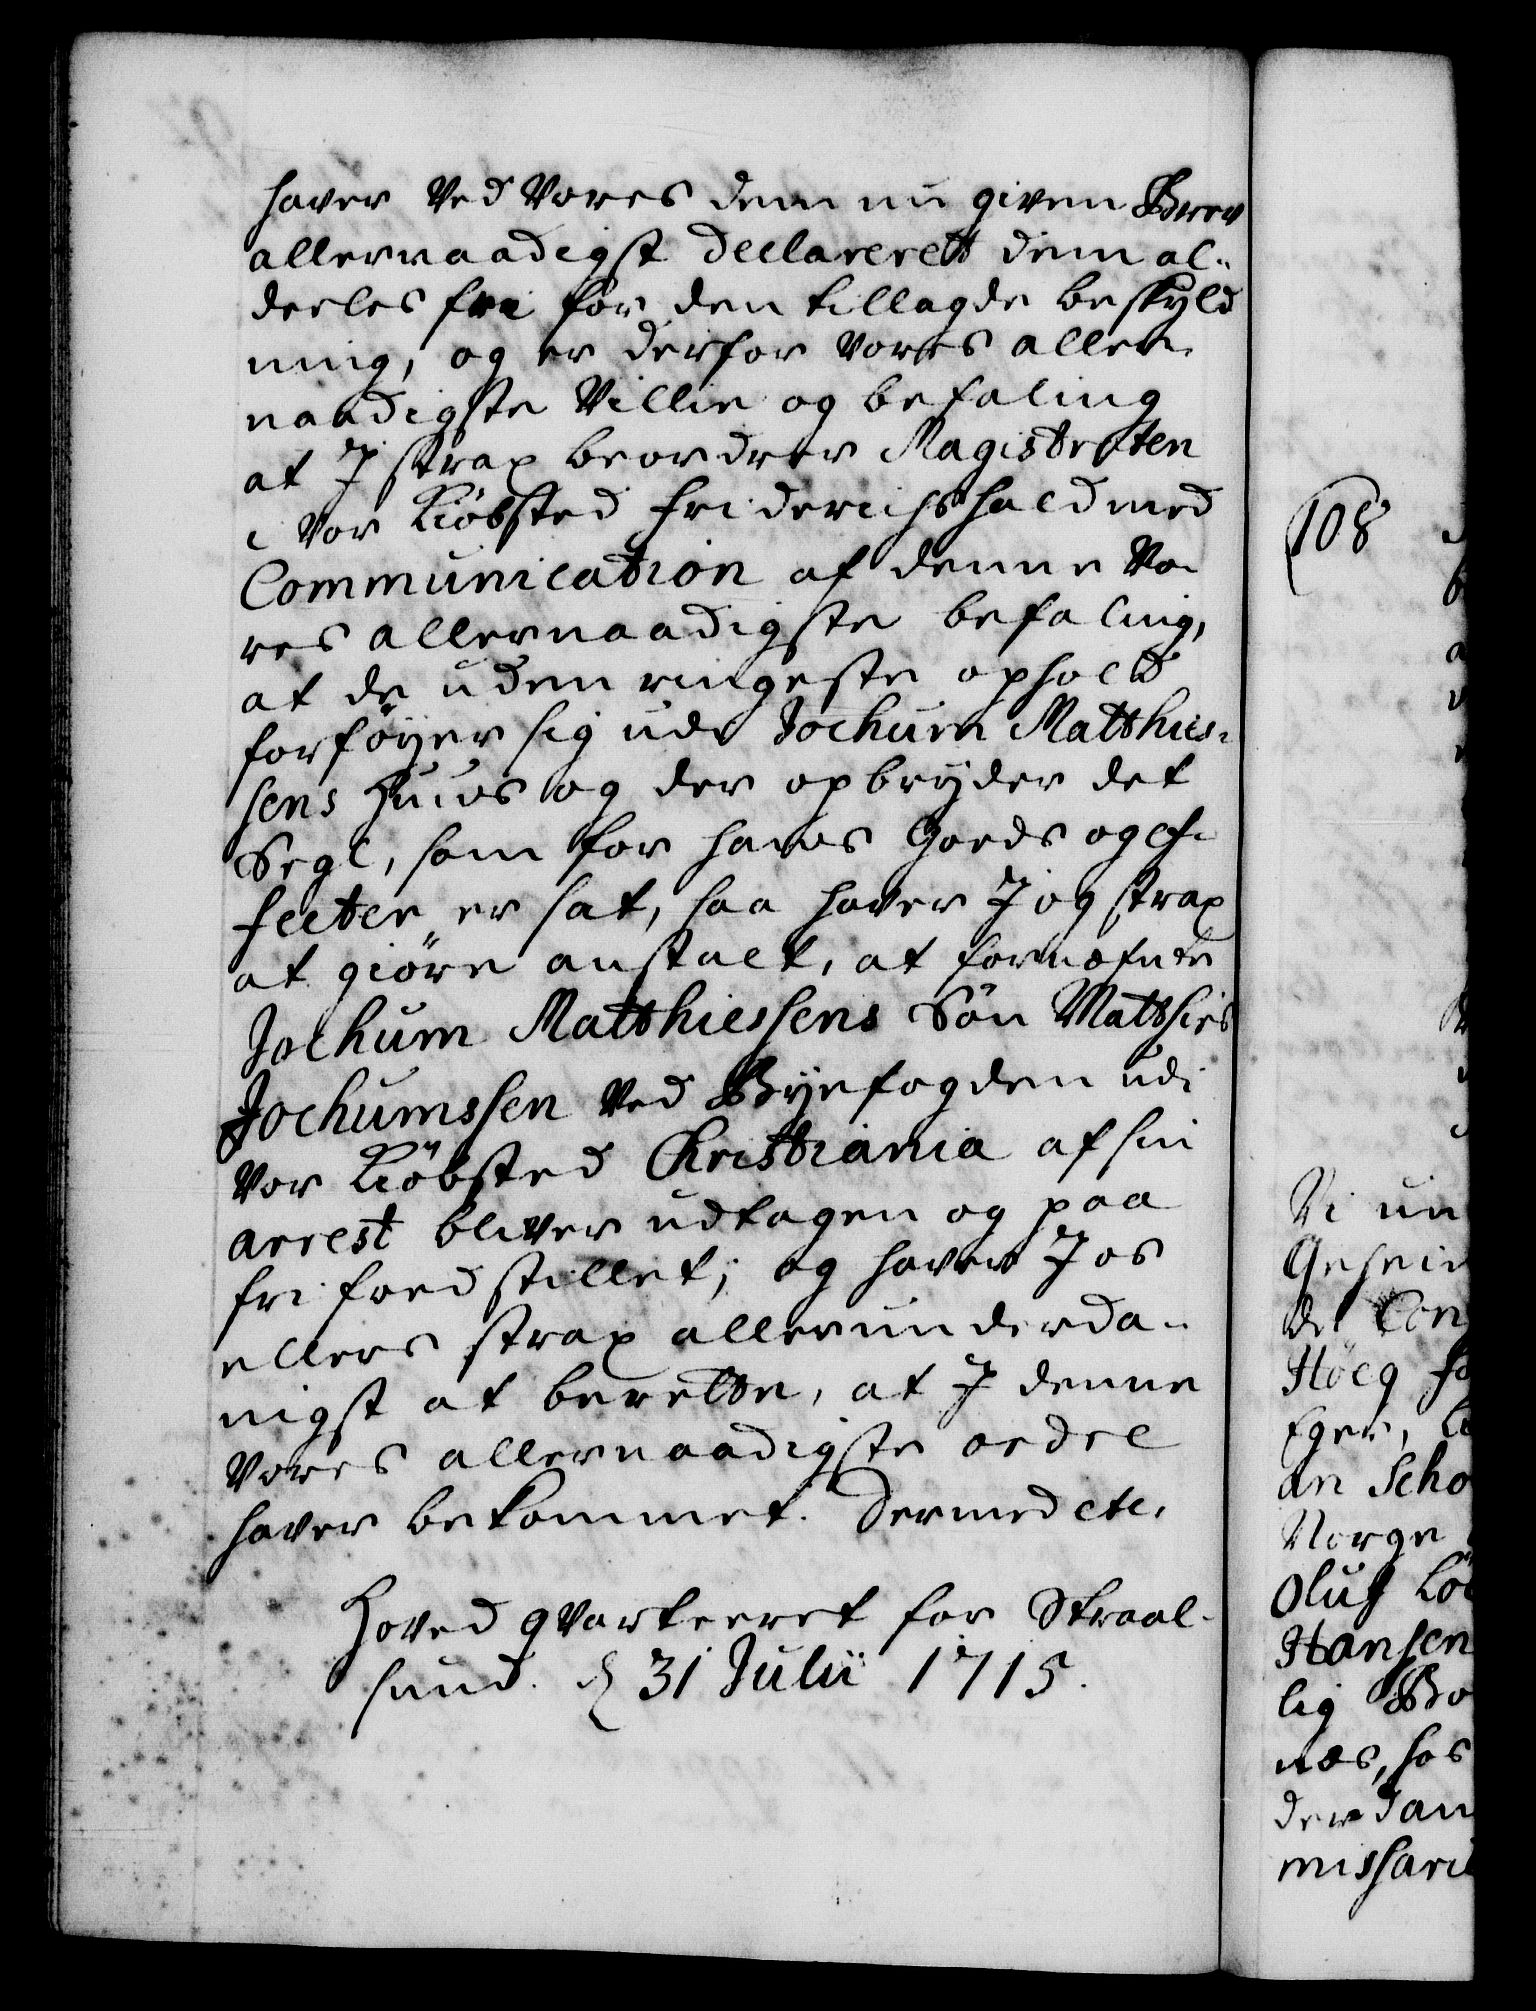 haver ved Vores dem nu given Brev
allernaadigst declareret dem al-
deeles fri for den tillagde beskyld
ning, og er derfor Vores aller-
naadigste Villie og befaling
at J strax beordrer Magistraten
i Vor Kiöbsted Friderichshald med
Communication af denne Vo-
res allernaadigste befaling,
at de uden ringeste ophold
forföÿer sig udi Jochum Matthies-
sens Huus og der opbryder det
Segl, som for hans Gods og Ef-
fecter er sat, saa haver J og strax
at giöre anstalt, at fornefnte
Jochum Matthiessens Sön Matthies
Jochumssen ved Byefogden udi
Vor Kiöbsted Christiania af sin
arrest bliver udtagen og paa
fri foed stillet; og haver J os
ellers strax allerunderda-
nigst at berette, at J denne
Vores allernaadigste ordre
haver bekommet. Dermed etc.
Hoved qvarteeret for Straal-
sund. d 31 Julii 1715.
108
Vi un
Geheim
de Con
Höeg
Eger,
an Scho
Norge
Oluf
Hansen
lig Bo
næs, hos
der dan
missari